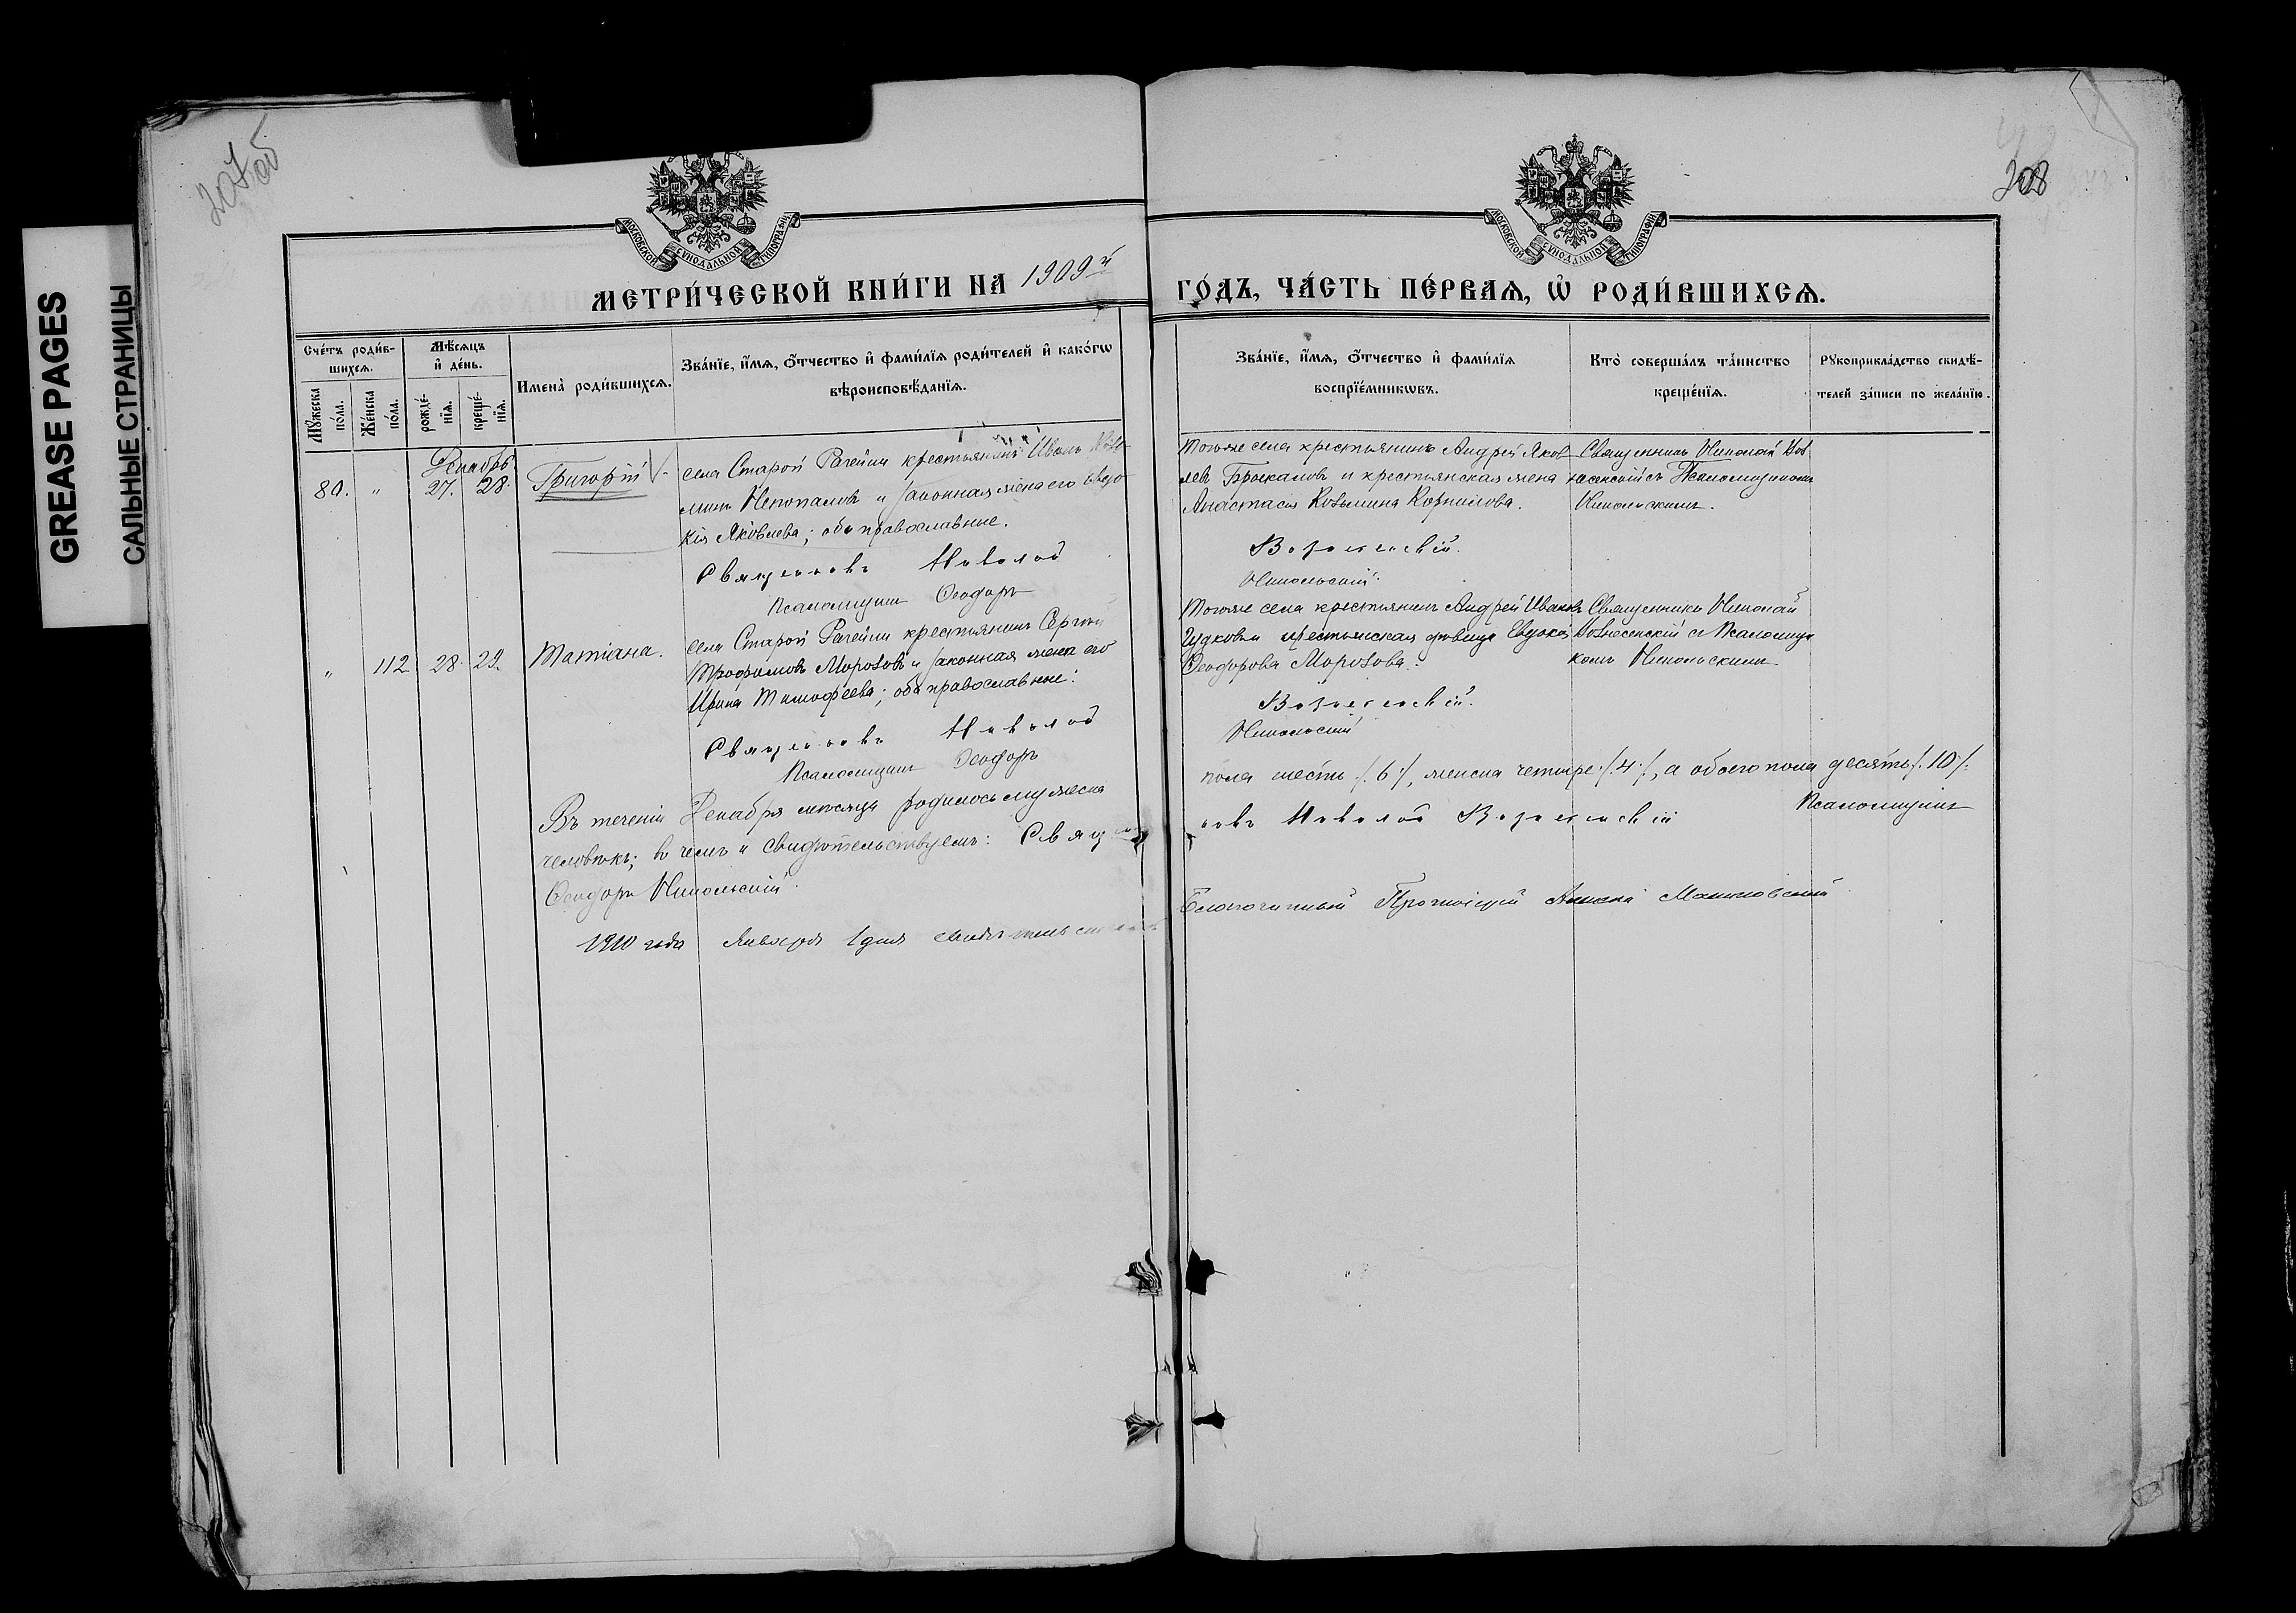 GREASE PAGES
САЛЬНЫЕ СТРАНИЦЫ
207об
208
МОСКОВСКОЙ СѴНОДАЛЬНОЙ ТИПОГРАФІИ
МОСКОВСКОЙ СѴНОДАЛЬНОЙ ТИПОГРАФІИ
МЕТРИ́ЧЕСКОЙ КНИ́ГИ НА 1909й
ГО́ДЪ, ЧА́СТЬ ПЕ́РВАѦ, Ѡ҆ РОДИ́ВШИХСѦ.
Счéтъ роди́в-
шихсѧ.
Мꙋ́жеска
по́ла.
Же́нска
по́ла.
Мѣ́сѧцъ
и҆ де́нь.
рожде́-
нїѧ.
креще́-
нїѧ.
Имена̀ роди́вшихсѧ.
Зва́нїе, и҆́мѧ, ѻ҆́тчество и҆ фами́лїѧ роди́телей и҆ како́гѡ
вѣроисповѣ́данїѧ.
Зва́нїе, и҆́мѧ, ѻ҆́тчество и҆ фами́лїѧ
воспрїе́мникѡвъ.
Кто̀ соверша́лъ та́инство
креще́нїѧ.
Рꙋкоприкла́дство свидѣ́-
телей за́писи по жела́нїю.
Декабрь
80. " 27. 28. Григорій
села Старой Рачейки крестьянинъ Иванъ
и законная жена его Евдо
кія Яковлева; оба православные.
Священникъ Николай
Псаломщикъ Ѳеодоръ
Тогоже села крестьянинъ Андрей Яков
левъ и крестьянская жена
Анастасія Козьмина Корнилова.
Вознесенскій.
Никольскій.
Священникъ Николай Воз
несенскій съ Псаломщикомъ
Никольскимъ.
" 112 28 29. Татіана.
села Старой Рачейки крестьянинъ Сергѣй
Трофимовъ Морозовъ и законная жена его
Ирина Тимофеева; оба православные.
Священникъ Николай
Псаломщикъ Ѳеодоръ
Тогоже села крестьянинъ Андрей Ивановъ
Чудковъ и крестьянская дѣвица Евдокія
Ѳеодорова Морозова.
Вознесенскій.
Никольскій
Священникъ Николай
Вознесенскій съ Псаломщи
комъ Никольскимъ
Въ теченіи Декабря мѣсяца родилось мужеска
пола шесть /.6./, женска четыре /.4./, а обоего пола десять /.10./
человѣкъ; въ чемъ и свидѣтельствуемъ: Священ
никъ Николай Вознесенскій Псаломщикъ
Ѳеодоръ Никольскій.
1910 года Января 1 дня свидѣтельствовалъ
Благочинный Протоіерей